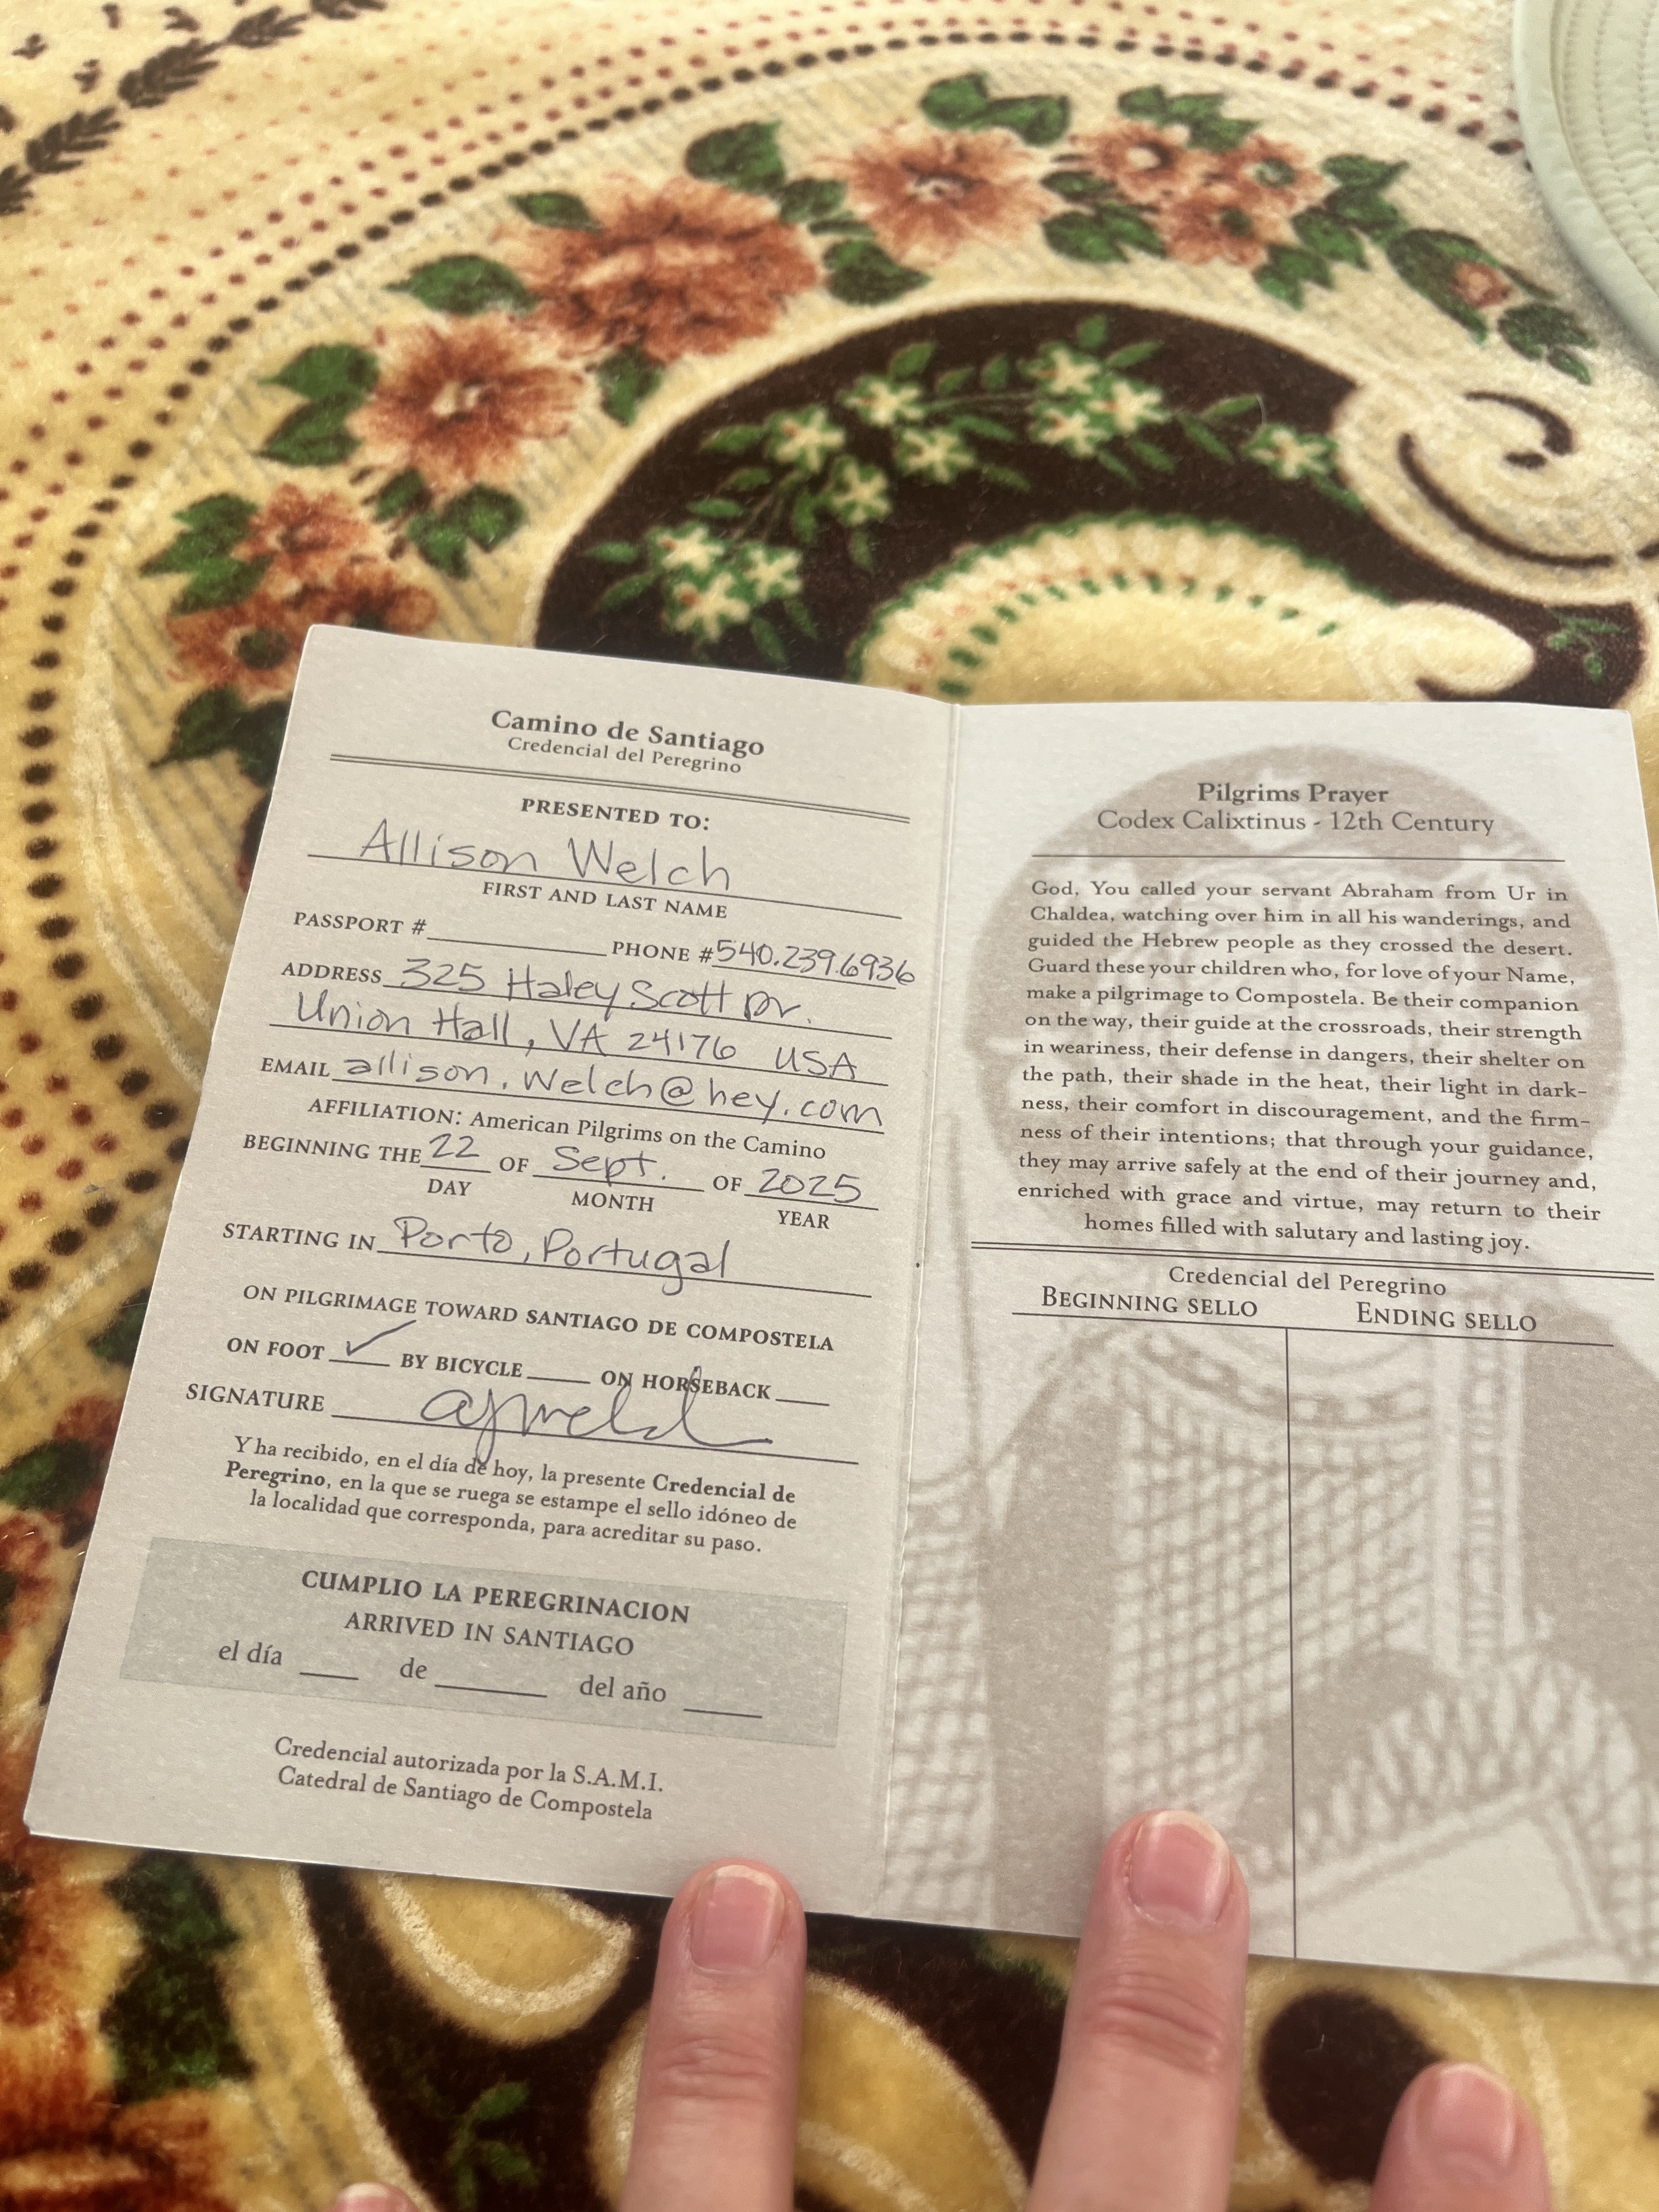 Camino de Santiago
Credencial del Peregrino
PRESENTED TO:
Allison Welch
FIRST AND LAST NAME
PASSPORT # PHONE # 540.239.6936
ADDRESS 325 Haley Scott Dr.
Union Hall, VA 24176 USA
EMAIL allison.welch@hey.com
AFFILIATION: American Pilgrims on the Camino
BEGINNING THE 22 OF Sept. OF 2025
DAY MONTH YEAR
STARTING IN Porto, Portugal
ON PILGRIMAGE TOWARD SANTIAGO DE COMPOSTELA
ON FOOT ✓ BY BICYCLE ON HORSEBACK
SIGNATURE
Y ha recibido, en el día de hoy, la presente Credencial de
Peregrino, en la que se ruega se estampe el sello idóneo de
la localidad que corresponda, para acreditar su paso.
CUMPLIO LA PEREGRINACION
ARRIVED IN SANTIAGO
el día ____ de ____ del año ____
Credencial autorizada por la S.A.M.I.
Catedral de Santiago de Compostela
Pilgrims Prayer
Codex Calixtinus - 12th Century
God, You called your servant Abraham from Ur in
Chaldea, watching over him in all his wanderings, and
guided the Hebrew people as they crossed the desert.
Guard these your children who, for love of your Name,
make a pilgrimage to Compostela. Be their companion
on the way, their guide at the crossroads, their strength
in weariness, their defense in dangers, their shelter on
the path, their shade in the heat, their light in dark-
ness, their comfort in discouragement, and the firm-
ness of their intentions; that through your guidance,
they may arrive safely at the end of their journey and,
enriched with grace and virtue, may return to their
homes filled with salutary and lasting joy.
Credencial del Peregrino
BEGINNING SELLO ENDING SELLO